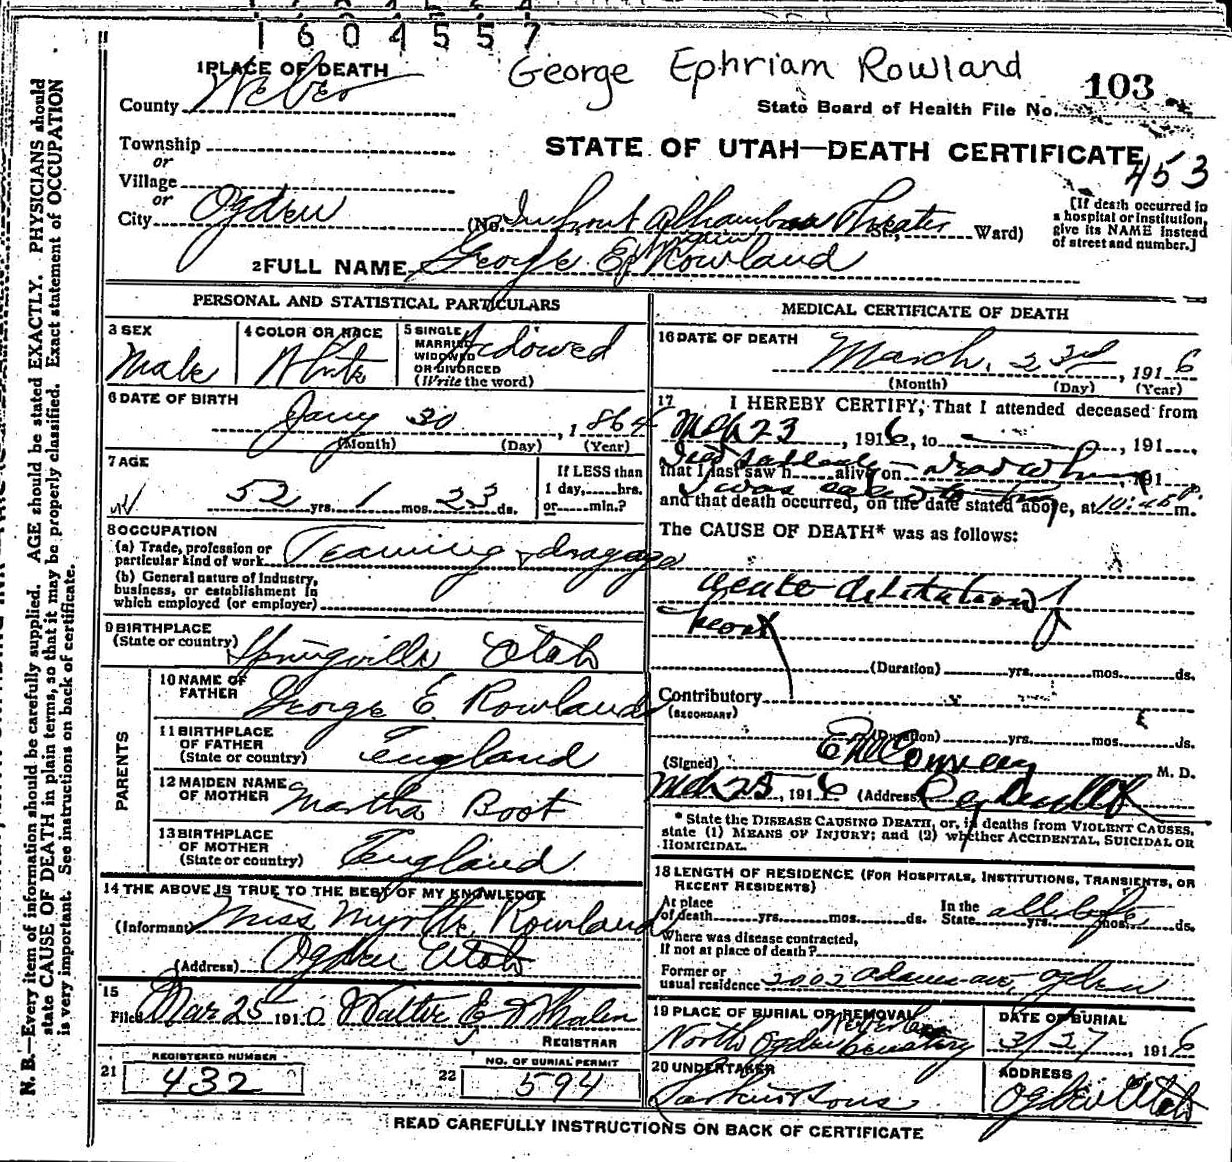 1604557
George Ephriam Rowland
103
State Board of Health File No.
1 PLACE OF DEATH
County Weber
STATE OF UTAH—DEATH CERTIFICATE
453
Township
or
Village
or
City Ogden (No. In front Alhambra Theater St., Ward)
[If death occurred in a hospital or institution, give its NAME instead of street and number.]
2 FULL NAME George Ephriam Rowland
PERSONAL AND STATISTICAL PARTICULARS
3 SEX Male
4 COLOR OR RACE White
5 SINGLE MARRIED WIDOWED OR DIVORCED (Write the word) Widowed
6 DATE OF BIRTH
Jany 30, 1864
(Month) (Day) (Year)
7 AGE
52 yrs. 1 mos. 23 ds.
If LESS than 1 day, hrs. or min.?
8 OCCUPATION
(a) Trade, profession or particular kind of work Teaming & dragage
(b) General nature of industry, business, or establishment in which employed (or employer)
9 BIRTHPLACE
(State or country) Springville Utah
PARENTS
10 NAME OF FATHER George E. Rowland
11 BIRTHPLACE OF FATHER (State or country) England
12 MAIDEN NAME OF MOTHER Martha Boot
13 BIRTHPLACE OF MOTHER (State or country) England
14 THE ABOVE IS TRUE TO THE BEST OF MY KNOWLEDGE
(Informant) Miss Myrtle Rowland
(Address) Ogden Utah
15
Filed Mar 25 191 Walter E Whalen
REGISTRAR
21 REGISTERED NUMBER 432
22 NO. OF BURIAL PERMIT 594
MEDICAL CERTIFICATE OF DEATH
16 DATE OF DEATH
March, 23rd, 1916
(Month) (Day) (Year)
17 I HEREBY CERTIFY, That I attended deceased from
Mch 23, 1916, to , 191
that I last saw h alive on , 191
and that death occurred, on the date stated above, at 10:45 P. m.
The CAUSE OF DEATH* was as follows:
acute dilitation of
heart
(Duration) yrs. mos. ds.
Contributory
(SECONDARY)
(Duration) yrs. mos. ds.
(Signed) M. D.
Mch 25, 1916 (Address)
* State the DISEASE CAUSING DEATH, or, in deaths from VIOLENT CAUSES, state (1) MEANS OF INJURY; and (2) whether ACCIDENTAL, SUICIDAL OR HOMICIDAL.
18 LENGTH OF RESIDENCE (FOR HOSPITALS, INSTITUTIONS, TRANSIENTS, OR RECENT RESIDENTS)
At place of death yrs. mos. ds. In the State all life yrs. mos. ds.
Where was disease contracted, If not at place of death?
Former or usual residence 2002 Adams ave, Ogden
19 PLACE OF BURIAL OR REMOVAL
North Ogden Cemetery
DATE OF BURIAL
3/27, 1916
20 UNDERTAKER
Larkin & Sons
ADDRESS
Ogden Utah
READ CAREFULLY INSTRUCTIONS ON BACK OF CERTIFICATE
N. B.—Every item of information should be carefully supplied. AGE should be stated EXACTLY. PHYSICIANS should
state CAUSE OF DEATH in plain terms, so that it may be properly classified. Exact statement of OCCUPATION
is very important. See instructions on back of certificate.